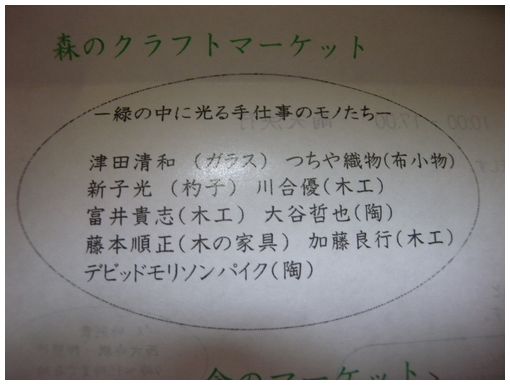 森のクラフトマーケット
－緑の中に光る手仕事のモノたち－
津田清和 （ガラス） つちや織物(布小物)
新子光 （杓子） 川合優(木工)
富井貴志(木工) 大谷哲也(陶)
藤本順正(木の家具) 加藤良行(木工)
デビッドモリソンパイク(陶)
のマーケット